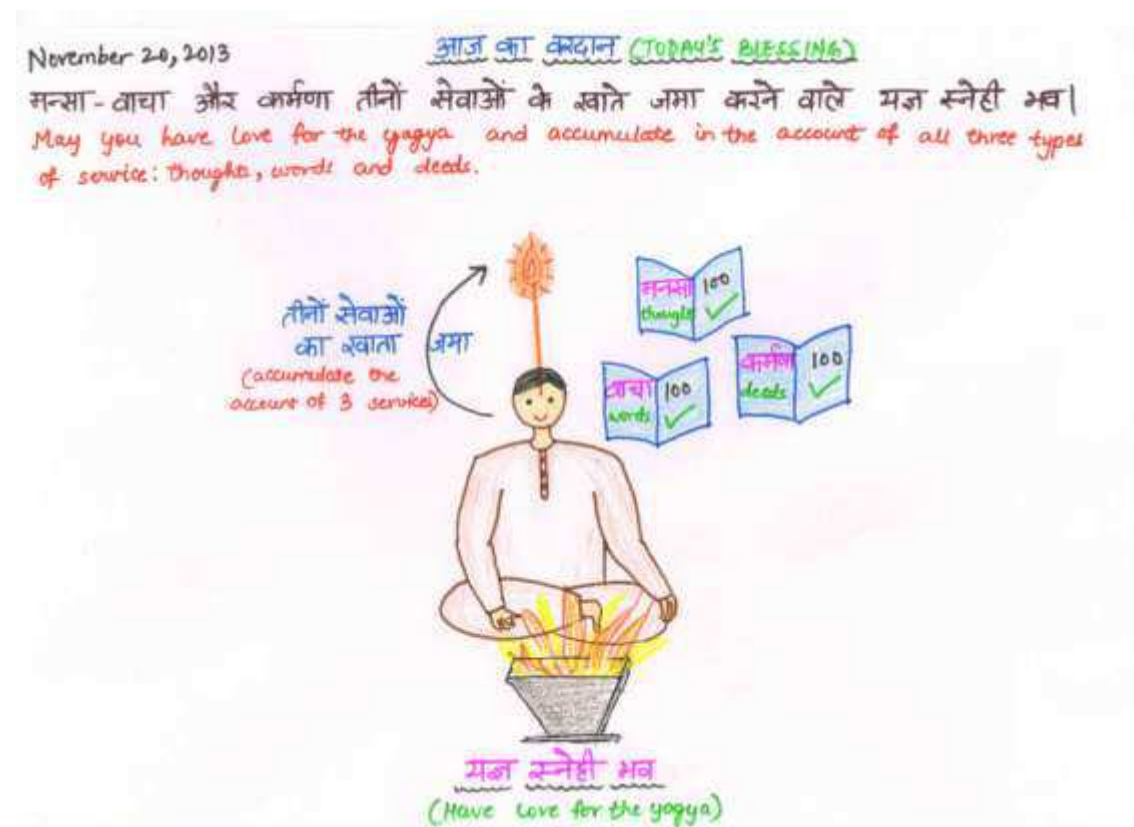 November 20, 2013
आज का वरदान (TODAY'S BLESSING)
मन्सा - वाचा और कर्मणा तीनों सेवाओं के खाते जमा करने वाले यज्ञ स्नेही भव|
May you have love for the yagya and accumulate in the account of all three types
of service: thoughts, words and deeds.
तीनों सेवाओं
का खाता जमा
(accumulate the
account of 3 services)
मनसा 100
thought
वाचा 100
words
कर्मणा 100
deeds
यज्ञ स्नेही भव
(Have love for the yagya)